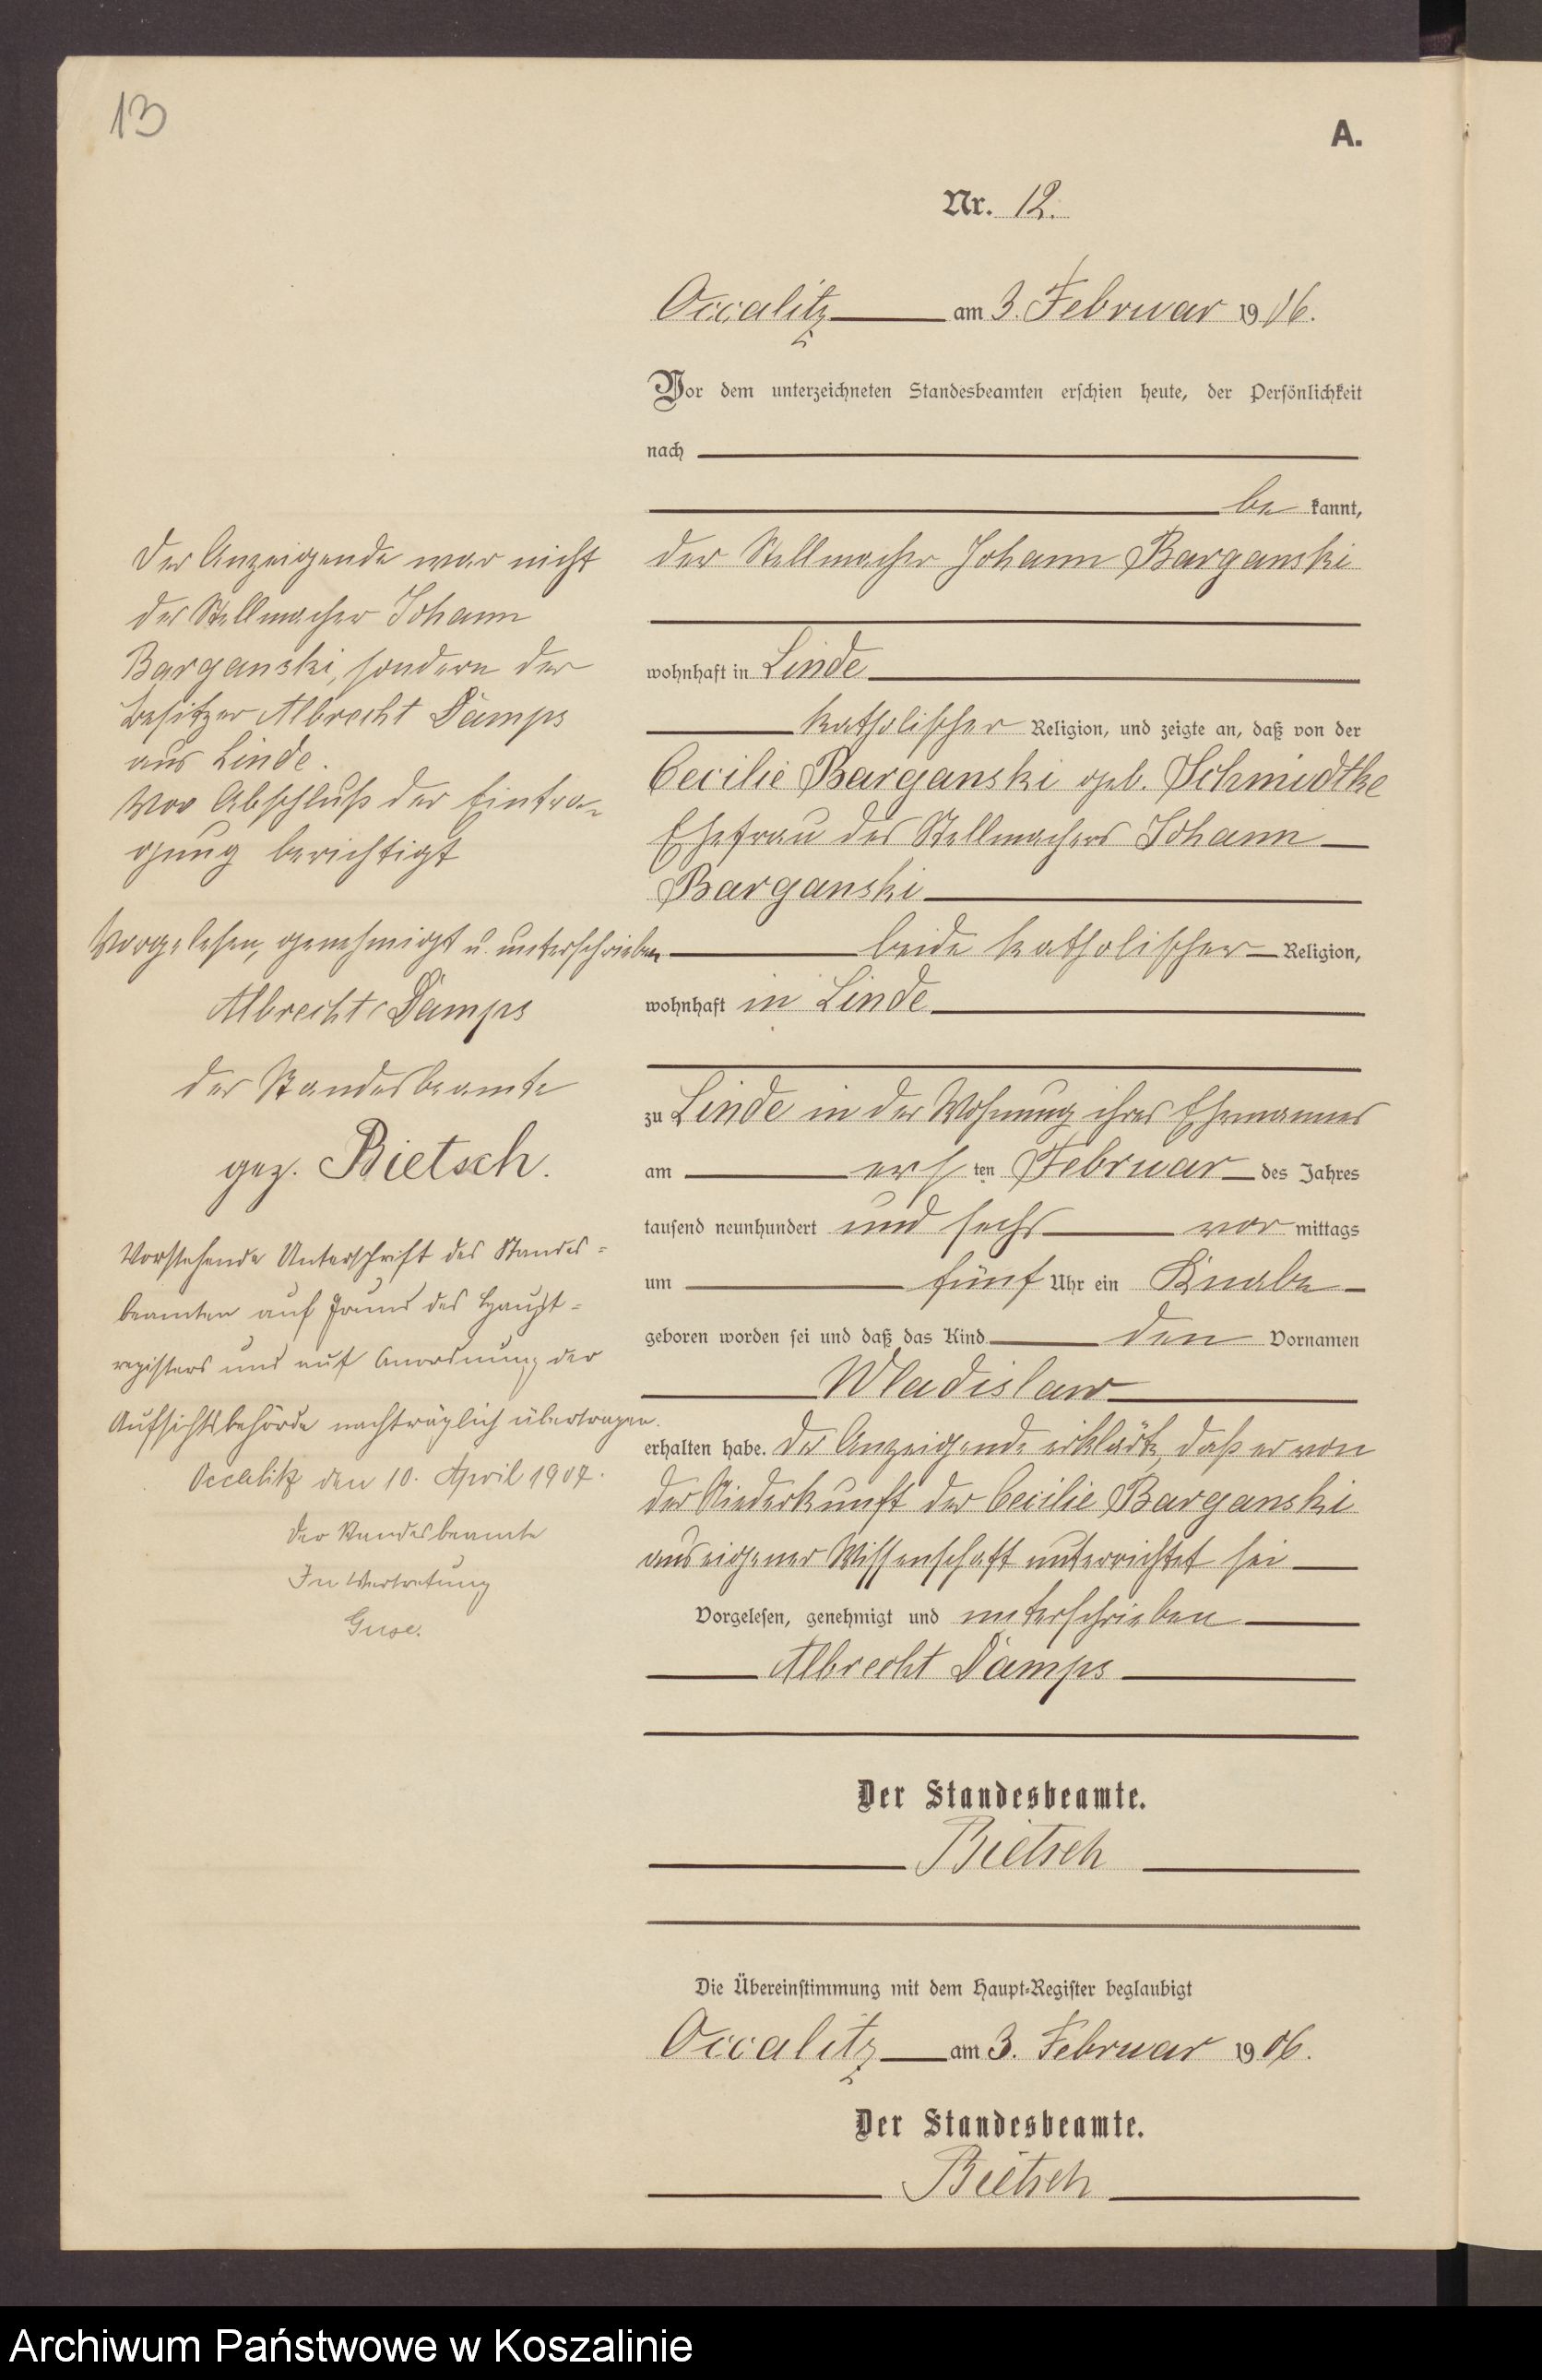 13
A.
Nr. 12.
Occalitz am 3. Februar 1906.
Vor dem unterzeichneten Standesbeamten erschien heute, der Persönlichkeit
nach
be kannt,
der Stellmacher Johann Barganski
wohnhaft in Linde
katholischer Religion, und zeigte an, daß von der
Cecilie Barganski geb. Schmidtke
Ehefrau des Stellmachers Johann
Barganski
beide katholischer Religion,
wohnhaft in Linde
zu Linde in der Wohnung ihres Ehemannes
am ersten Februar des Jahres
tausend neunhundert und sechs vormittags
um fünf Uhr ein Knabe
geboren worden sei und daß das Kind den Vornamen
Wladislaw
erhalten habe. Der Anzeigende erklärte, daß er von
der Niederkunft der Cecilie Barganski
aus eigener Wissenschaft unterrichtet sei
Vorgelesen, genehmigt und unterschrieben
Albrecht Damps
Der Standesbeamte.
Bietsch
Die Übereinstimmung mit dem Haupt-Register beglaubigt
Occalitz am 3. Februar 1906.
Der Standesbeamte.
Bietsch
Der Anzeigende war nicht
der Stellmacher Johann
Barganski, sondern der
Besitzer Albrecht Damps
aus Linde.
Vor Abschluß der Eintra-
gung berichtigt
Vorgelesen, genehmigt u. unterschrieben
Albrecht Damps
der Standesbeamte
gez. Bietsch.
Vorstehende Unterschrift des Standes-
beamten auf Grund des Haupt-
registers und auf Anordnung der
Aufsichtsbehörde nachträglich übertragen.
Occalitz den 10. April 1907.
Der Standesbeamte
In Vertretung
Guse.
Archiwum Państwowe w Koszalinie